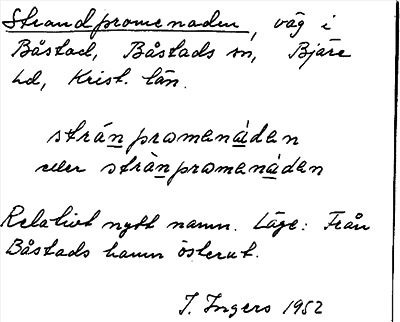 Strandpromenaden, väg i
Båstad, Båstads sn, Bjäre
hd, Krist. län.
strán promenàden
eller stràn promenáden
Relativt nytt namn. Läge: Från
Båstads hamn österut.
I. Ingers 1952